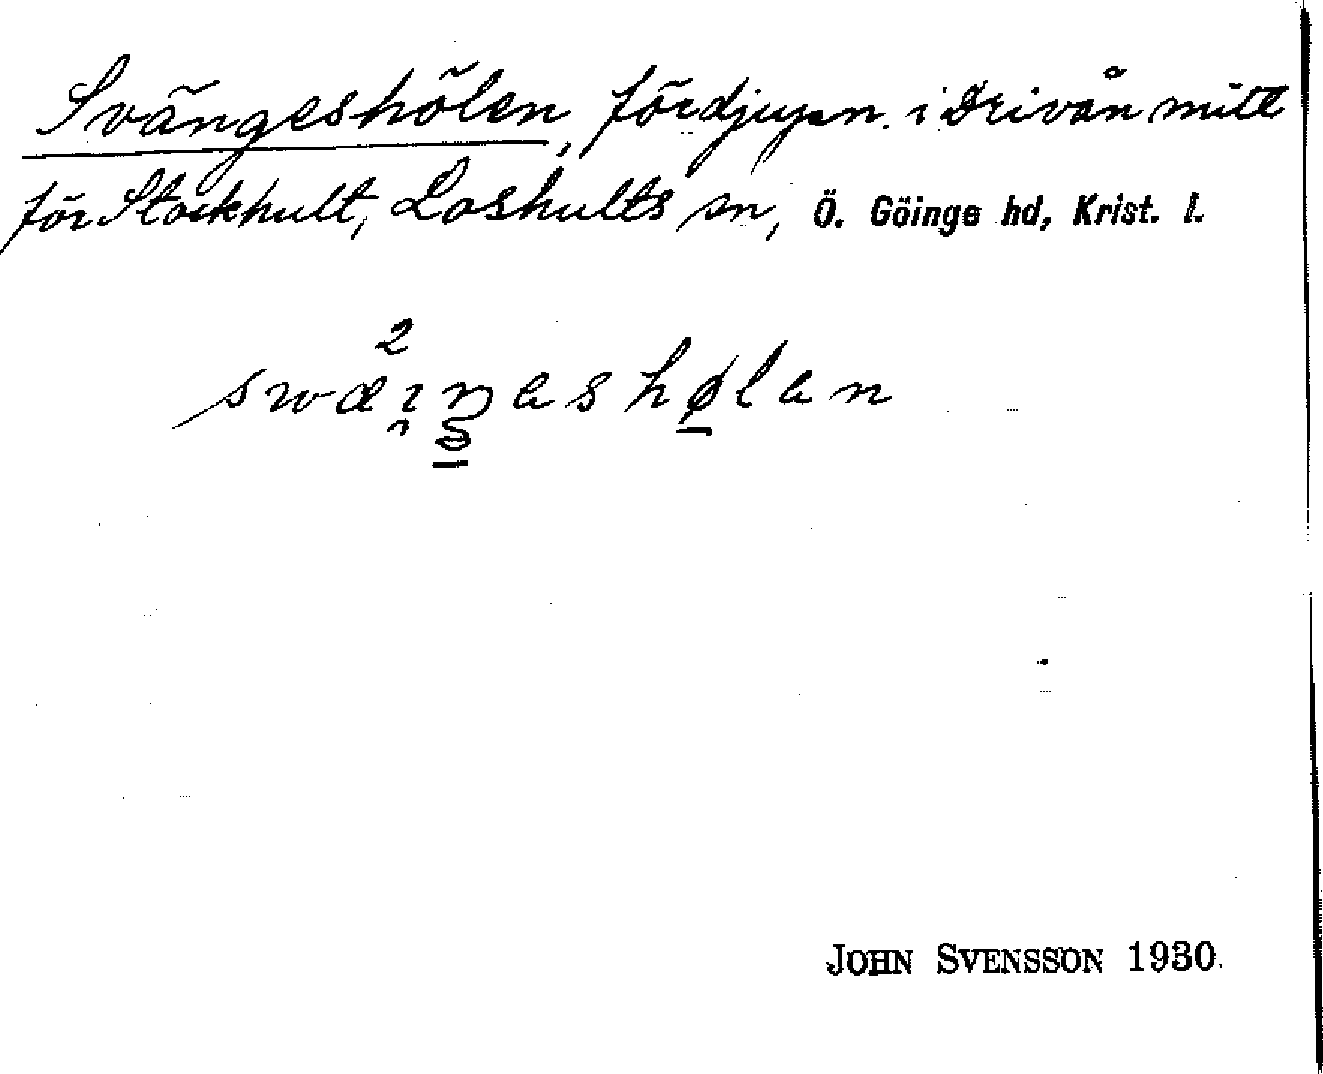 Svängeshölen, fördjupn. i Drivån mitt
för Stockhult, Loshults sn, Ö. Göinge hd, Krist. l.
JOHN SVENSSON 1930.